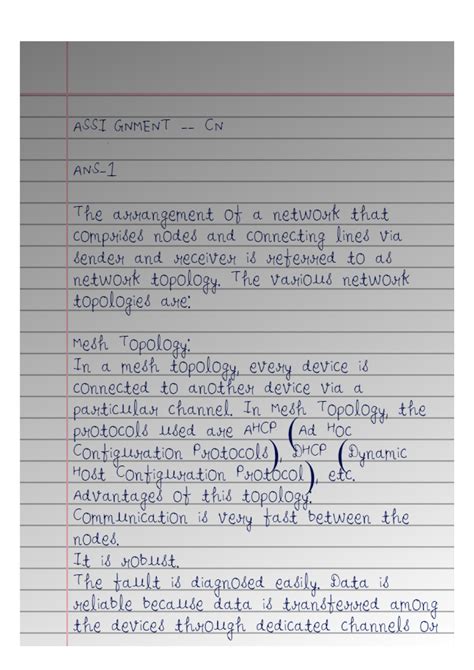 ASSIGNMENT -- CN
ANS-1
The arrangement of a network that
comprises nodes and connecting lines via
sender and receiver is referred to as
network topology. The various network
topologies are:
Mesh Topology:
In a mesh topology, every device is
connected to another device via a
particular channel. In Mesh Topology, the
protocols used are AHCP (Ad Hoc
Configuration Protocols), DHCP (Dynamic
Host Configuration Protocol), etc.
Advantages of this topology:
Communication is very fast between the
nodes.
It is robust.
The fault is diagnosed easily. Data is
reliable because data is transferred among
the devices through dedicated channels or